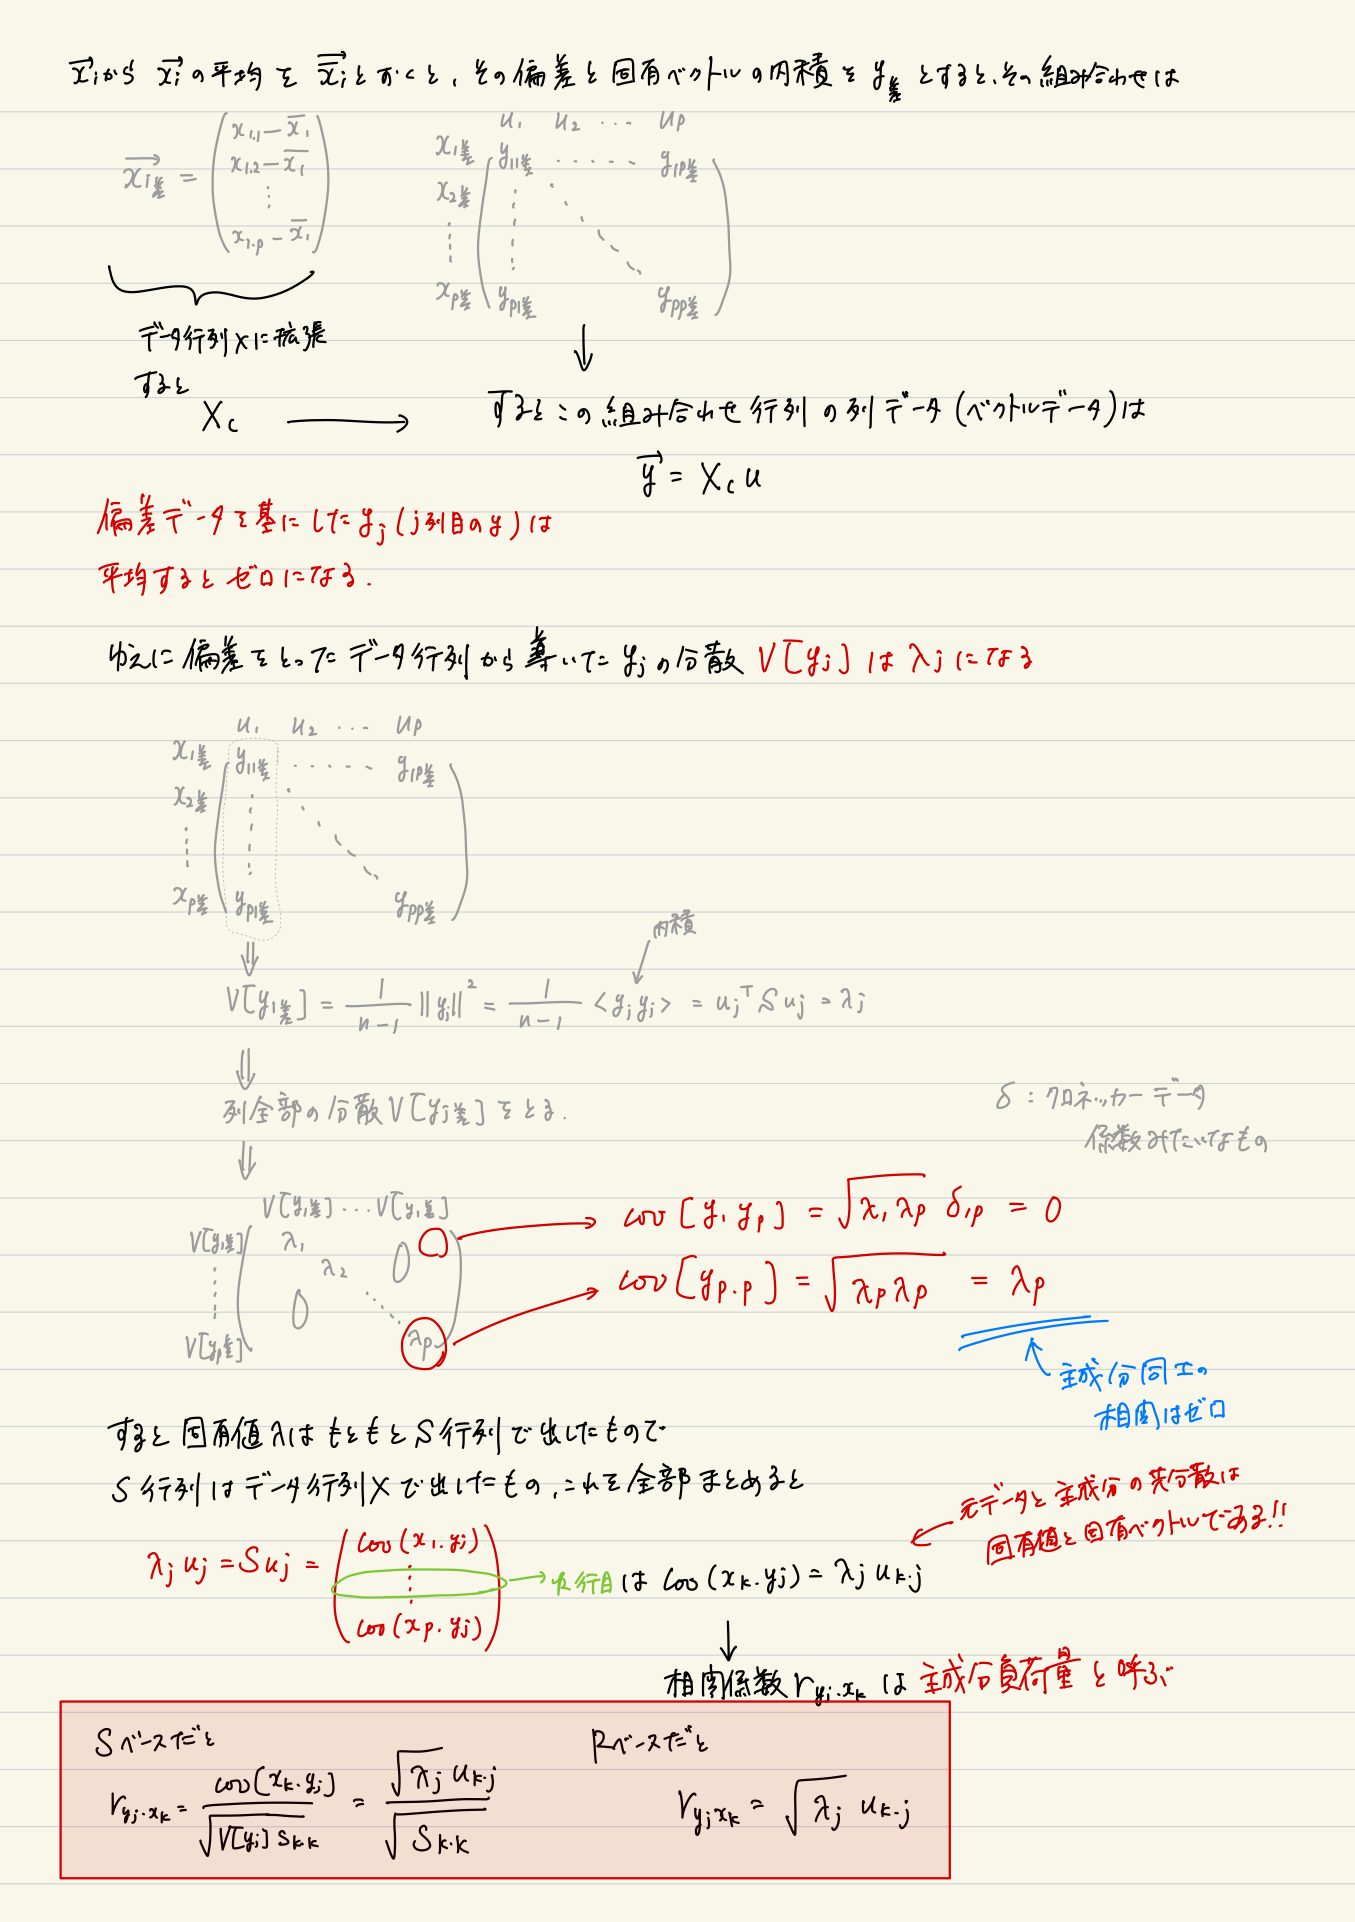 x⃗iから x⃗iの平均を x̄⃗iとおくと、その偏差と固有ベクトルの内積を y差 とすると、その組み合わせは
x⃗i差 = ( x1.1 − x̄1
x1.2 − x̄1
⋮
x1.p − x̄1 )
u1 u2 ・・・ up
x1差 y11差 ・・・・・・ y1p差
x2差
⋮
xp差 yp1差 ypp差
データ行列Xに拡張
すると
Xc → するとこの組み合わせ行列の列データ(ベクトルデータ)は
y⃗ = Xc u
偏差データを基にした yj (j列目のy) は
平均するとゼロになる.
ゆえに偏差をとったデータ行列から導いた yjの分散 V[yj] は λj になる
u1 u2 ・・・ up
x1差 y11差 ・・・・・・ y1p差
x2差
⋮
xp差 yp1差 ypp差
内積
V[y1差] = 1/(n−1) ||yj||² = 1/(n−1) <yj yj> = uj^T S uj = λj
列全部の分散 V[yj差] をとる.
δ:クロネッカーデータ
係数みたいなもの
V[y1差]・・・V[y1差]
V[y1差] λ1 0
λ2
⋮ 0
V[yp差] λp
cov[y1 yp] = √(λ1 λp) δ1p = 0
cov[yp.p] = √(λp λp) = λp
主成分同士の
相関はゼロ
すると固有値λはもともとS行列で出したもので
S行列はデータ行列Xで出したもの、これを全部まとめると
元データと主成分の共分散は
固有値と固有ベクトルである!!
λj uj = S uj = ( cov(x1.yj)
⋮
cov(xp.yj) )
→ k行目は cov(xk.yj) = λj uk.j
相関係数 ryj.xk は 主成分負荷量と呼ぶ
Sベースだと
ryj.xk = cov[xk.yj] / √(V[yj] sk.k) = √λj uk.j / √Sk.k
Rベースだと
ryjxk = √λj uk.j